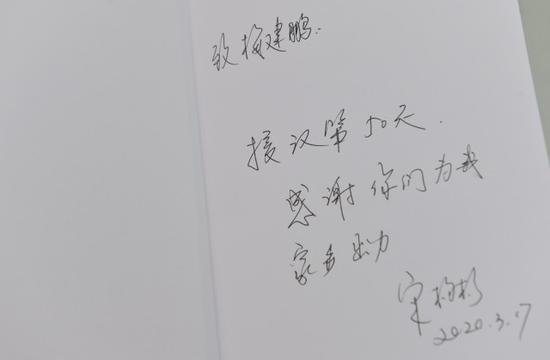 致梅建鹏:
援汉第50天.
感谢你们为我
家乡出力
宋
2020.3.17